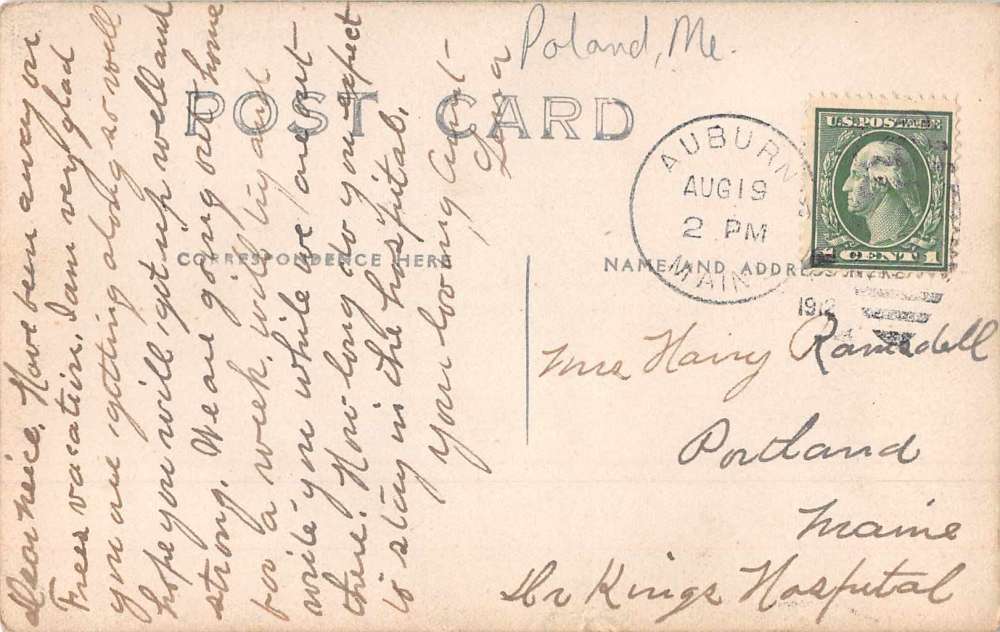 Poland, Me.
POST CARD
AUBURN
AUG 19
2 PM
MAINE
1912
U.S. POSTAGE
1 CENT 1
CORRESPONDENCE HERE
NAME AND ADDRESS HERE
Dear niece. Have been away on
Frees vacation. I am very glad
you are getting along so well
hope you will get up well and
strong. We are going over home
for a week, will try and
write you while we are at
there. How long do you expect
to stay in the hospital.
Your loving Aunt
Lena
Mrs Harry Ramsdell
Portland
Maine
Dr Kings Hospital